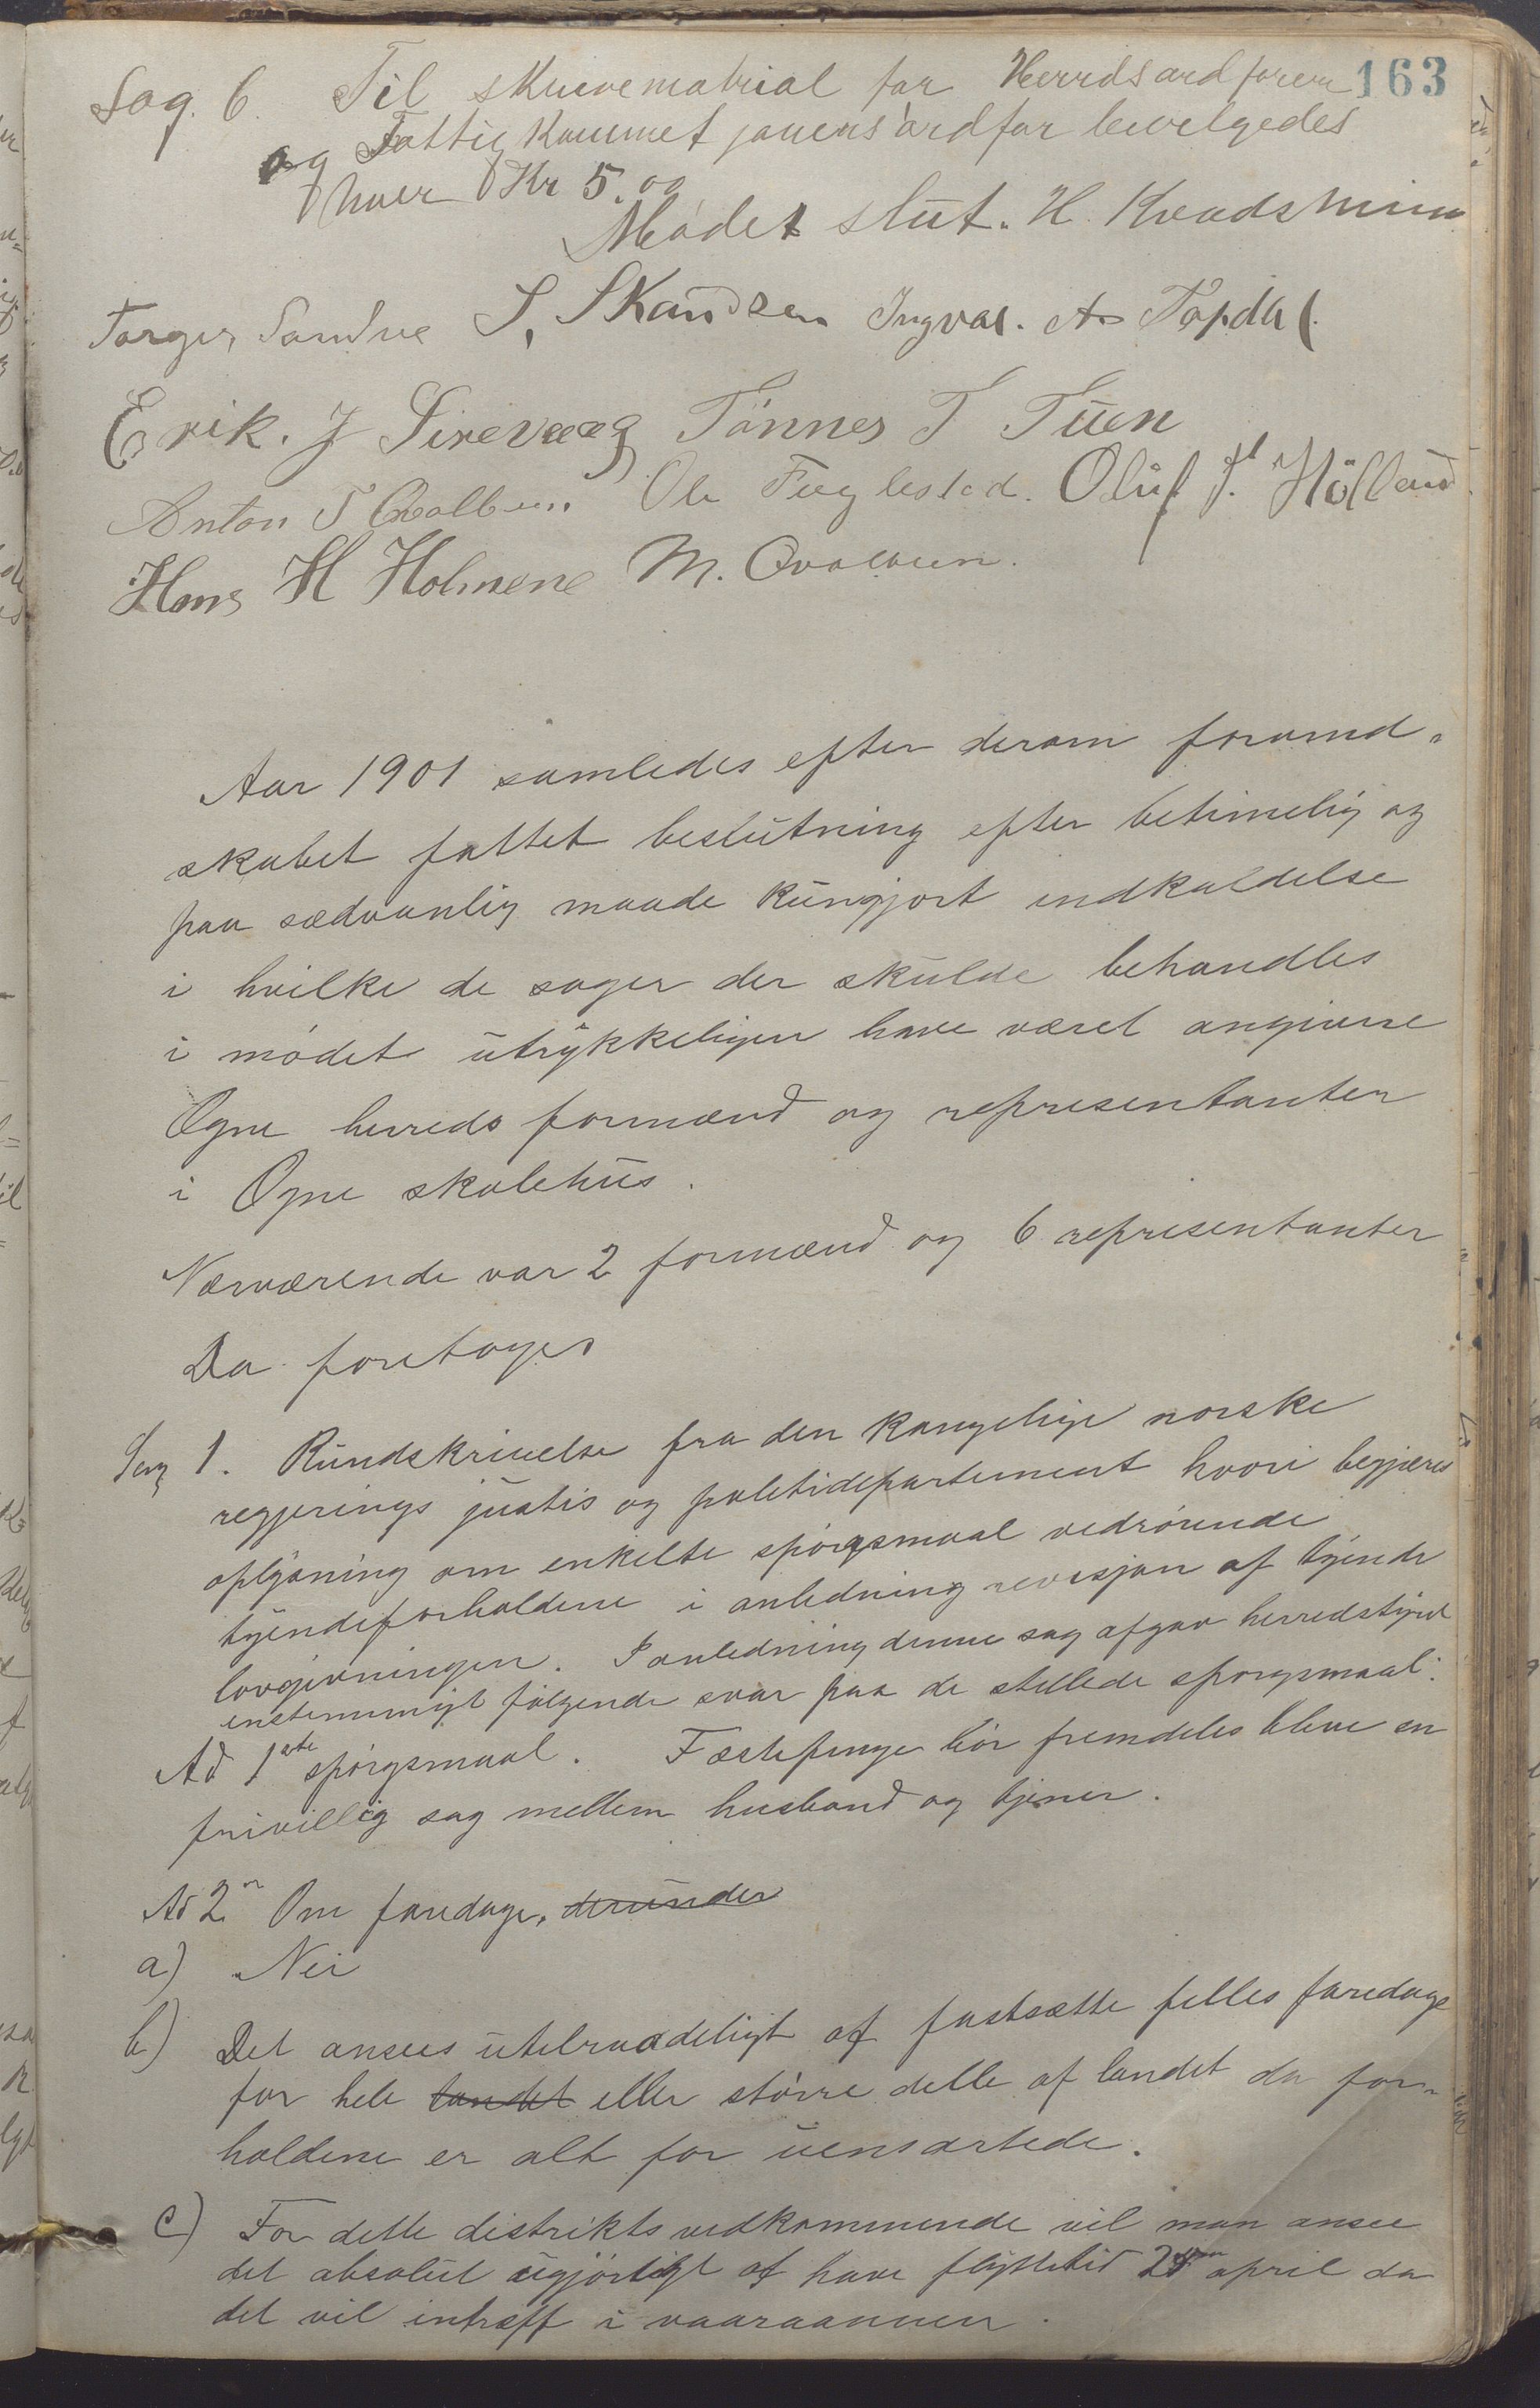 163
Sag. 6. Til skrivematrial for Herrdsordforere
og Fattigkommetjonens ordfør bevelgedes
hver Kr 5.00
Mødet slut. H. Kvadsheim
Torger Sandve S, Skandsen Ingvar. A. Topdal.
Erik. J Sirevaag Tønnes T Tuen
Anton T Qvalbein Ole Fuglestad. Oluf T. Hölland
Hans H Holmene M. Qvalbein.
Aar 1901 samledes efter derom formand-
skabet fattet beslutning efter betimelig og
paa sædvanlig maade kungjort indkaldelse
i hvilke de sager der skulde behandles
i mødet utrykkeligen have været angivne
Ogne herreds formænd og representanter
i Ogne skolehus.
Nærværende var 2 formænd og 6 representanter
Da foretoges
Sag 1. Rundskrivelse fra den kongelige norske
regjerings justis og politidepartement hvori begjæres
oplysning om enkelte spørgsmaal vedrørende
tyendeforholdene i anledning revisjon af tyende
lovgivningen. I anledning denne sag afgav herredstyret
enstemmigt følgende svar paa de stillede spørgsmaal:
Ad 1ste spørgsmaal. Fæstepenge bør fremdeles blive en
frivillig sag mellem husbond og tjener.
Ad 2n Om faredage, derunder
a) Nei
b) Det ansees utilraadeligt at fastsætte felles faredage
for hele landet eller større delle af landet da for-
holdene er alt for uensartede.
c) For dette distrikts vedkommende vil man ansee
det absolut ugjørligt at have flyttetid april da
det vil intræff i vaaraannen.